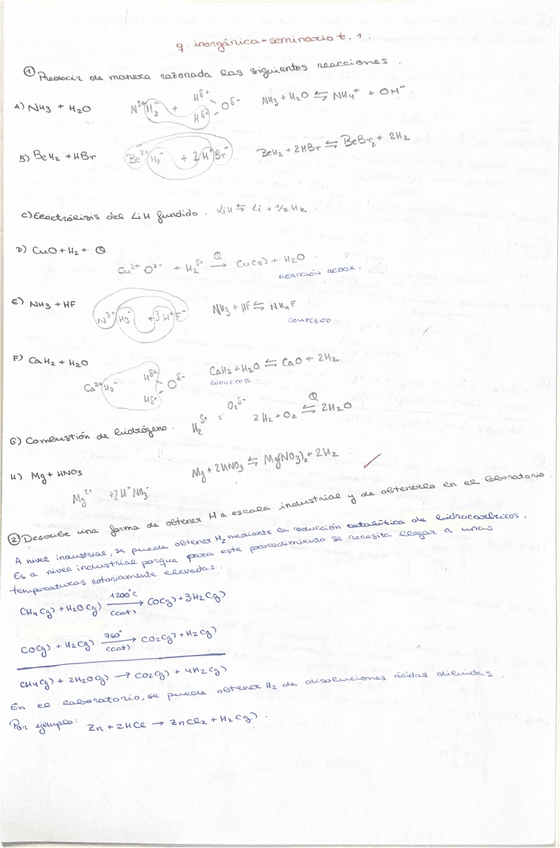 q. inorgánica - seminario t. 1.
① Predecir de manera razonada las siguientes reacciones.
A) NH3 + H2O N³⁻H3⁻ + Hδ+ Hδ+ Oδ- NH3 + H2O ⇆ NH4⁺ + OH⁻
B) BeH2 + HBr Be²⁺H2⁻ + 2H⁺Br⁻ BeH2 + 2HBr ⇆ BeBr2 + 2H2
C) Electrólisis del LiH fundido. LiH ⇆ Li + ½H2.
D) CuO + H2 + Q
Cu²⁺O²⁻ + H2δ+ Q→ Cu(s) + H2O
REACCIÓN REDOX.
E) NH3 + HF N³⁻H3⁻ + 3H⁺F⁻ NH3 + HF ⇆ NH4F
COMPLEJO
F) CaH2 + H2O Ca²⁺H2⁻ Hδ+ Hδ+ Oδ- CaH2 + H2O ⇆ CaO + 2H2
G) Combustión de hidrógeno. H2δ+ O2δ- 2H2 + O2 Q⇆ 2H2O
H) Mg + HNO3 Mg + 2HNO3 ⇆ Mg(NO3)2 + 2H2
Mg²⁺ + 2H⁺NO3⁻
② Describe una forma de obtener H a escala industrial y de obtenerlo en el laboratorio.
A nivel industrial, se puede obtener H2 mediante la reducción catalítica de hidrocarburos.
Es a nivel industrial porque para este procedimiento se necesita llegar a unas
temperaturas notoriamente elevadas.
CH4(g) + H2O(g) 1200°C (cat)→ CO(g) + 3H2(g)
CO(g) + H2(g) 760° (cat)→ CO2(g) + H2(g)
CH4(g) + 2H2O(g) → CO2(g) + 4H2(g)
En el laboratorio, se puede obtener H2 de disoluciones ácidas diluidas.
Por ejemplo: Zn + 2HCl → ZnCl2 + H2(g).